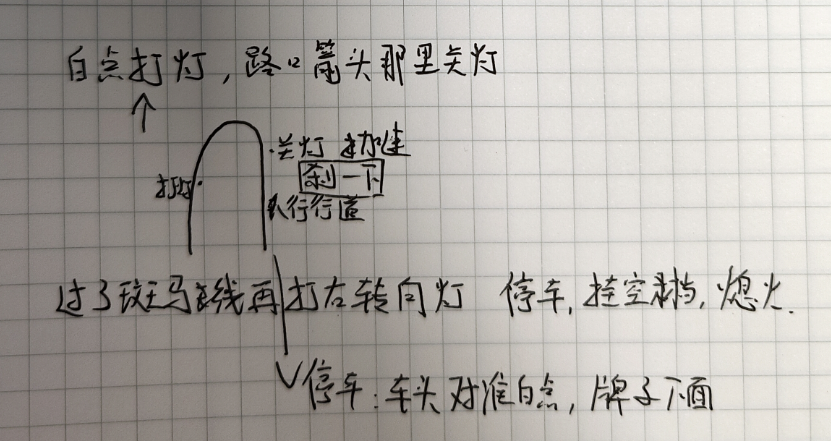 白点打灯，路口箭头那里关灯
关灯 加速
打灯
刹一下
人行行道
过了斑马线再打右转向灯 停车，挂空档，熄火.
停车：车头对准白点，牌子下面